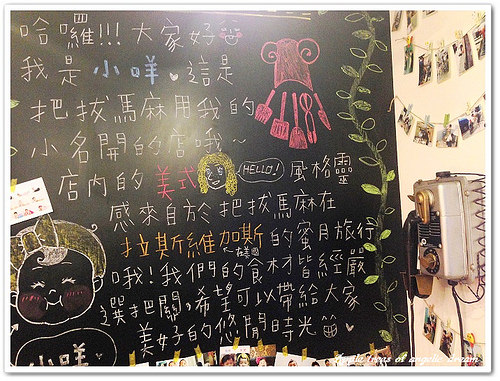 哈囉!!! 大家好
我是小咩 這是
把拔馬麻用我的
小名開的店哦~
店內的美式 HELLO! 風格靈
感來自於把拔馬麻在
拉斯維加斯的蜜月旅行
在美國
哦!我們的食材皆經嚴
選把關,希望可以帶給大家
美好的悠閒時光
小咩